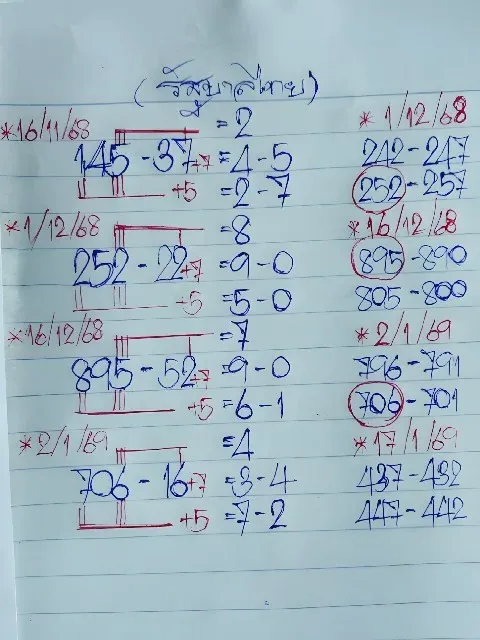 (รัฐบาลไทย)
*16/11/68 = 2 * 1/12/68
145 - 37 +7 = 4 - 5 242 - 247
+5 = 2 - 7 252 - 257
*1/12/68 = 8 *16/12/68
252 - 22 +7 = 9 - 0 895 - 890
+5 = 5 - 0 805 - 800
*16/12/68 = 7 *2/1/69
895 - 52 +7 = 9 - 0 796 - 791
+5 = 6 - 1 706 - 701
*2/1/69 = 4 *17/1/69
706 - 16 +7 = 3 - 4 437 - 432
+5 = 7 - 2 447 - 442